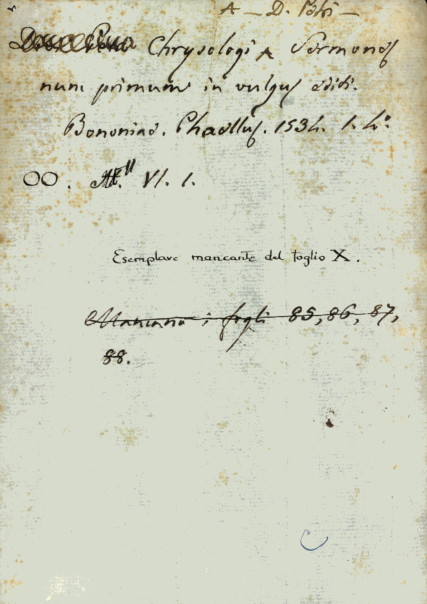 A — D. Petri —
Chrysologi A Sermones
nunc primum in vulgus editi.
Bononiae. Phaellus. 1534. 1. 4°
OO. VI. 1.
Esemplare mancante del foglio X.
Mancano i fogli 85, 86, 87,
88.